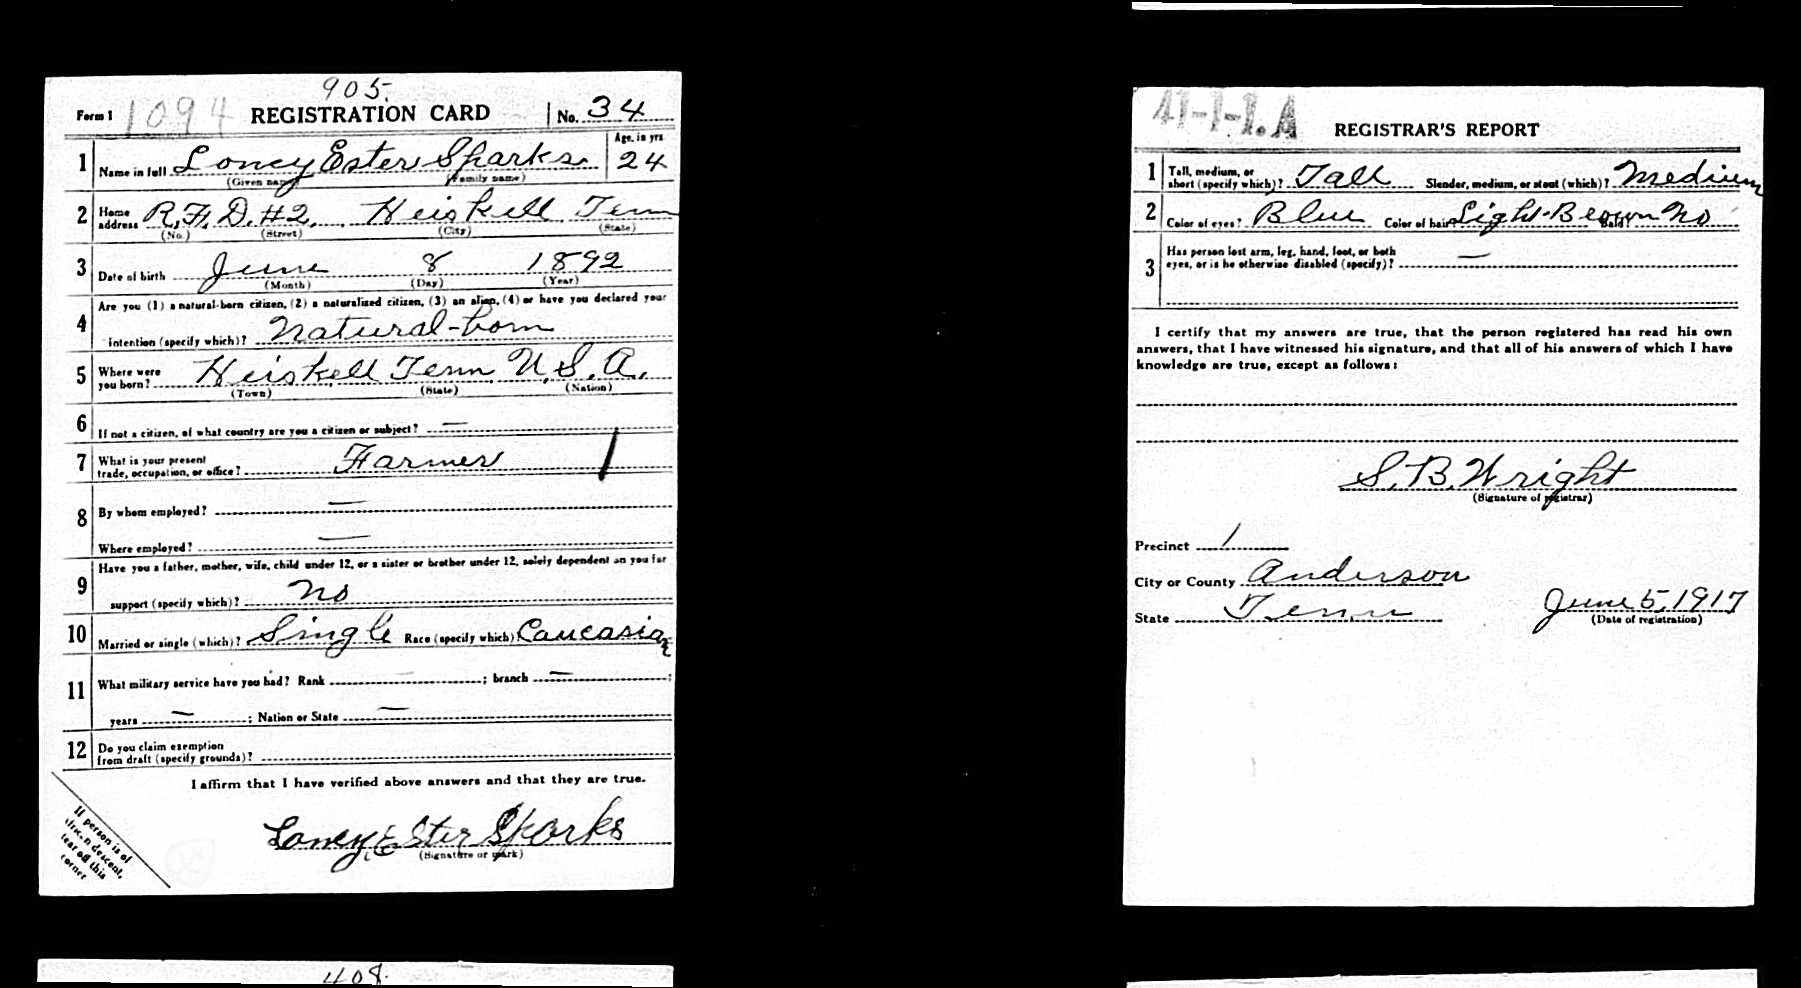 905.
Form 1 1094 REGISTRATION CARD No. 34
Age, in yrs.
1 Name in full Loney Ester Sparks. 24
(Given name) (Family name)
2 Home address R.F.D. #2, Heiskell Tenn
(No.) (Street) (City) (State)
3 Date of birth June 8 1892
(Month) (Day) (Year)
4 Are you (1) a natural-born citizen, (2) a naturalized citizen, (3) an alien, (4) or have you declared your
intention (specify which)? Natural-born
5 Where were you born? Heiskell Tenn U.S.A.
(Town) (State) (Nation)
6 If not a citizen, of what country are you a citizen or subject? —
7 What is your present
trade, occupation, or office? Farmer
8 By whom employed? —
Where employed? —
9 Have you a father, mother, wife, child under 12, or a sister or brother under 12, solely dependent on you for
support (specify which)? No
10 Married or single (which)? Single Race (specify which) Caucasian
11 What military service have you had? Rank — ; branch — ;
years — ; Nation or State —
12 Do you claim exemption
from draft (specify grounds)?
I affirm that I have verified above answers and that they are true.
Loney Ester Sparks
(Signature or mark)
If person is of
descent,
tear off this
corner
408.
41-1-1.A
REGISTRAR'S REPORT
1 Tall, medium, or
short (specify which)? Tall Slender, medium, or stout (which)? Medium
2 Color of eyes? Blue Color of hair? Light-Brown Bald? No
3 Has person lost arm, leg, hand, foot, or both
eyes, or is he otherwise disabled (specify)? —
I certify that my answers are true, that the person registered has read his own
answers, that I have witnessed his signature, and that all of his answers of which I have
knowledge are true, except as follows:
S. B. Wright
(Signature of registrar)
Precinct 1
City or County Anderson
State Tenn June 5, 1917
(Date of registration)